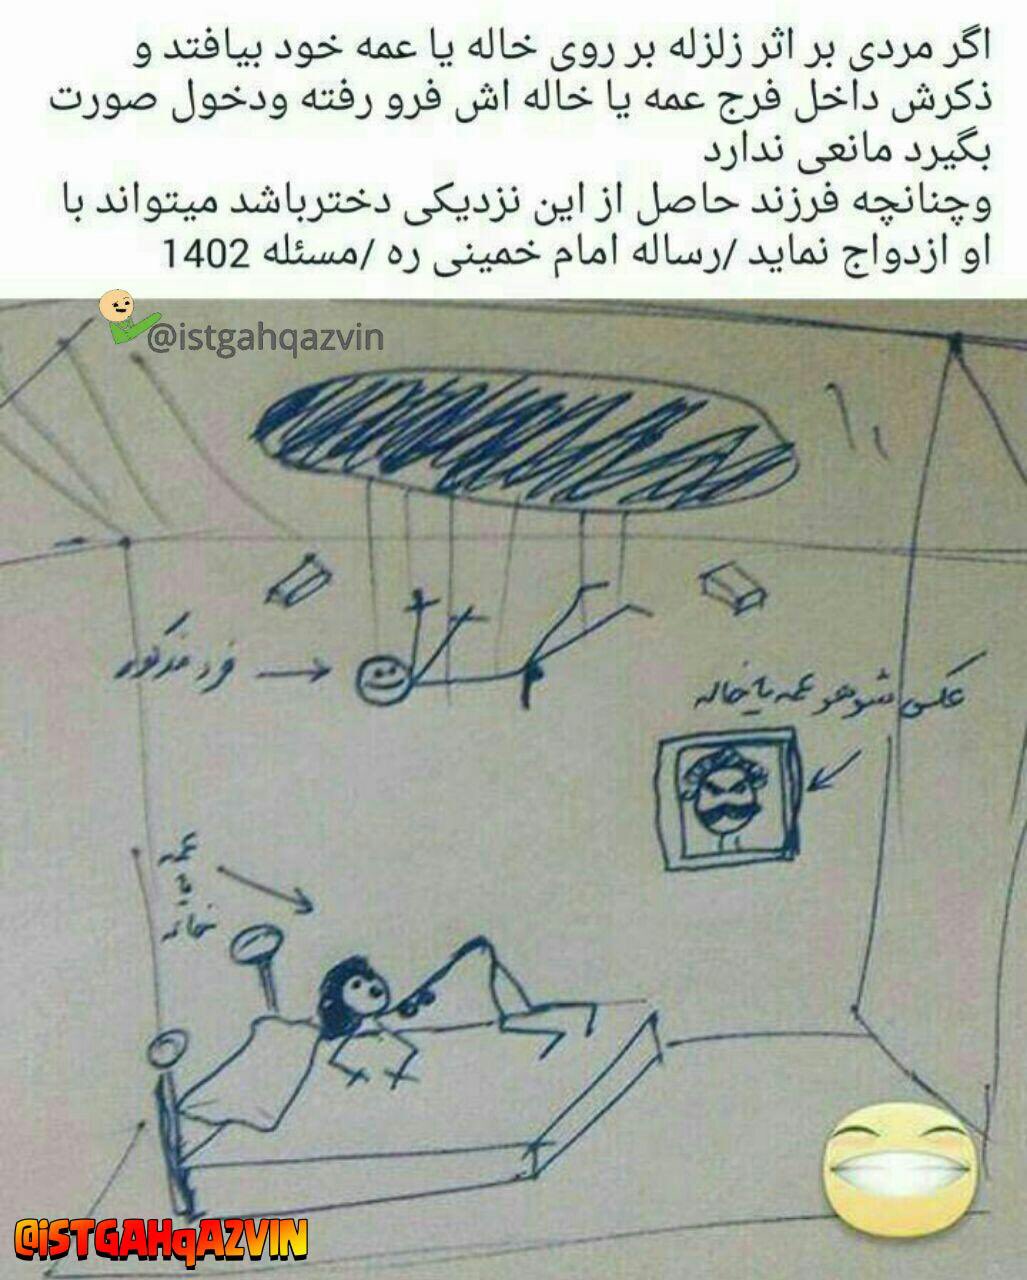 اگر مردی بر اثر زلزله بر روی خاله یا عمه خود بیافتد و
ذکرش داخل فرج عمه یا خاله اش فرو رفته ودخول صورت
بگیرد مانعی ندارد
وچنانچه فرزند حاصل از این نزدیکی دخترباشد میتواند با
او ازدواج نماید /رساله امام خمینی ره /مسئله 1402
@istgahqazvin
فرد مذکور
عکس شوهر عمه یا خاله
عمه
یا
خاله
@iSTGAHqAZVIN